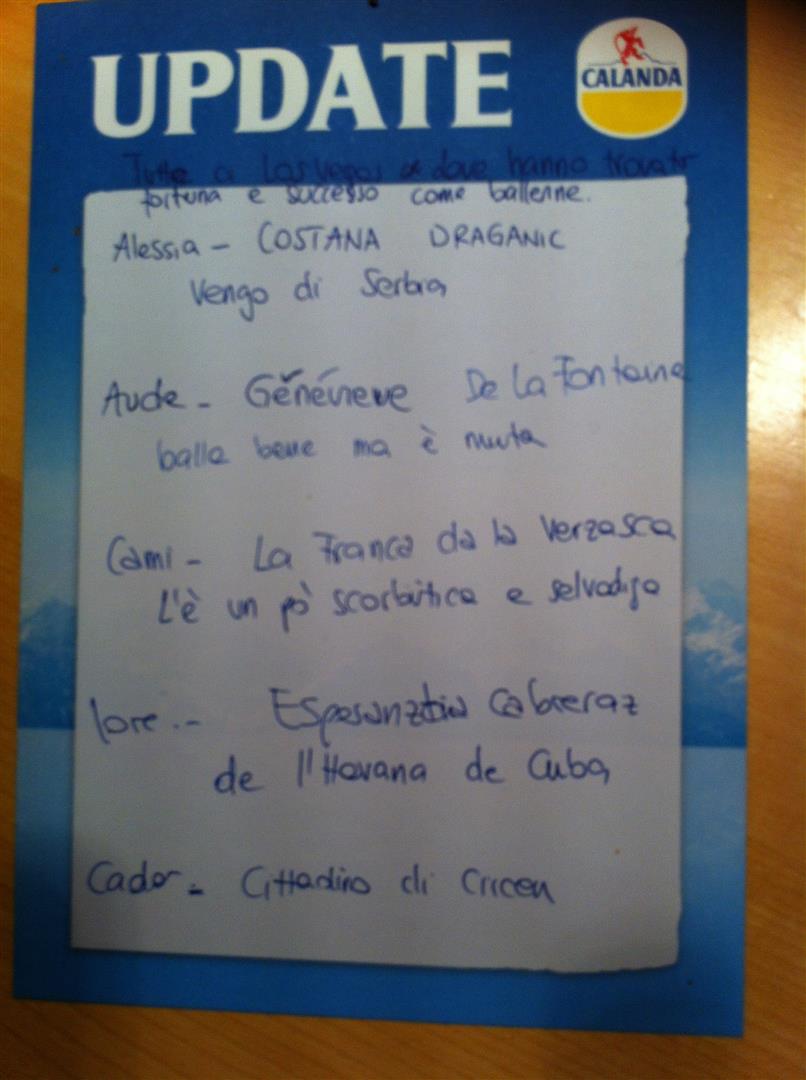 UPDATE
CALANDA
Tutte a Las Vegas dove hanno trovato
fortuna e successo come ballerine.
Alessia - COSTANA DRAGANIC
Vengo di Serbia
Aude - Génévieve De La Fontaine
balla bene ma è muta
Cami - La Franca da la Verzasca
L'è un pò scorbutica e selvadiga
lore - Cabreraz
de l'Havana de Cuba
Cador - Cittadino di